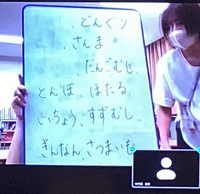 、どんぐり
、さんま
だんごむし、
とんぼ、ほたる、
いちょう、すずむし、
ぎんなん、さつまいも、